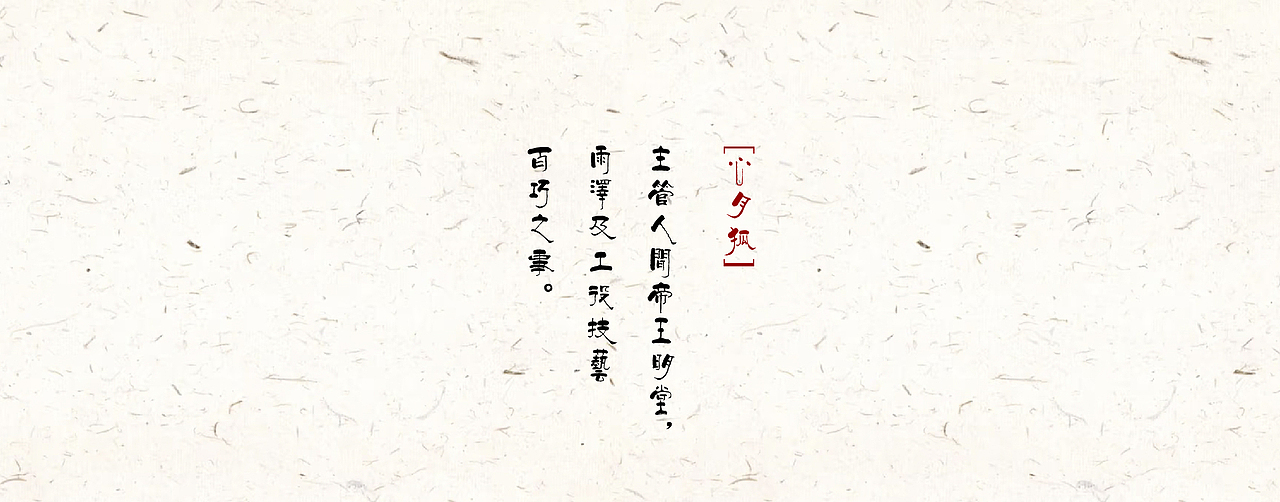 [心夕狐]
主管人間帝王明堂，
雨澤及工役技藝
百巧之事。